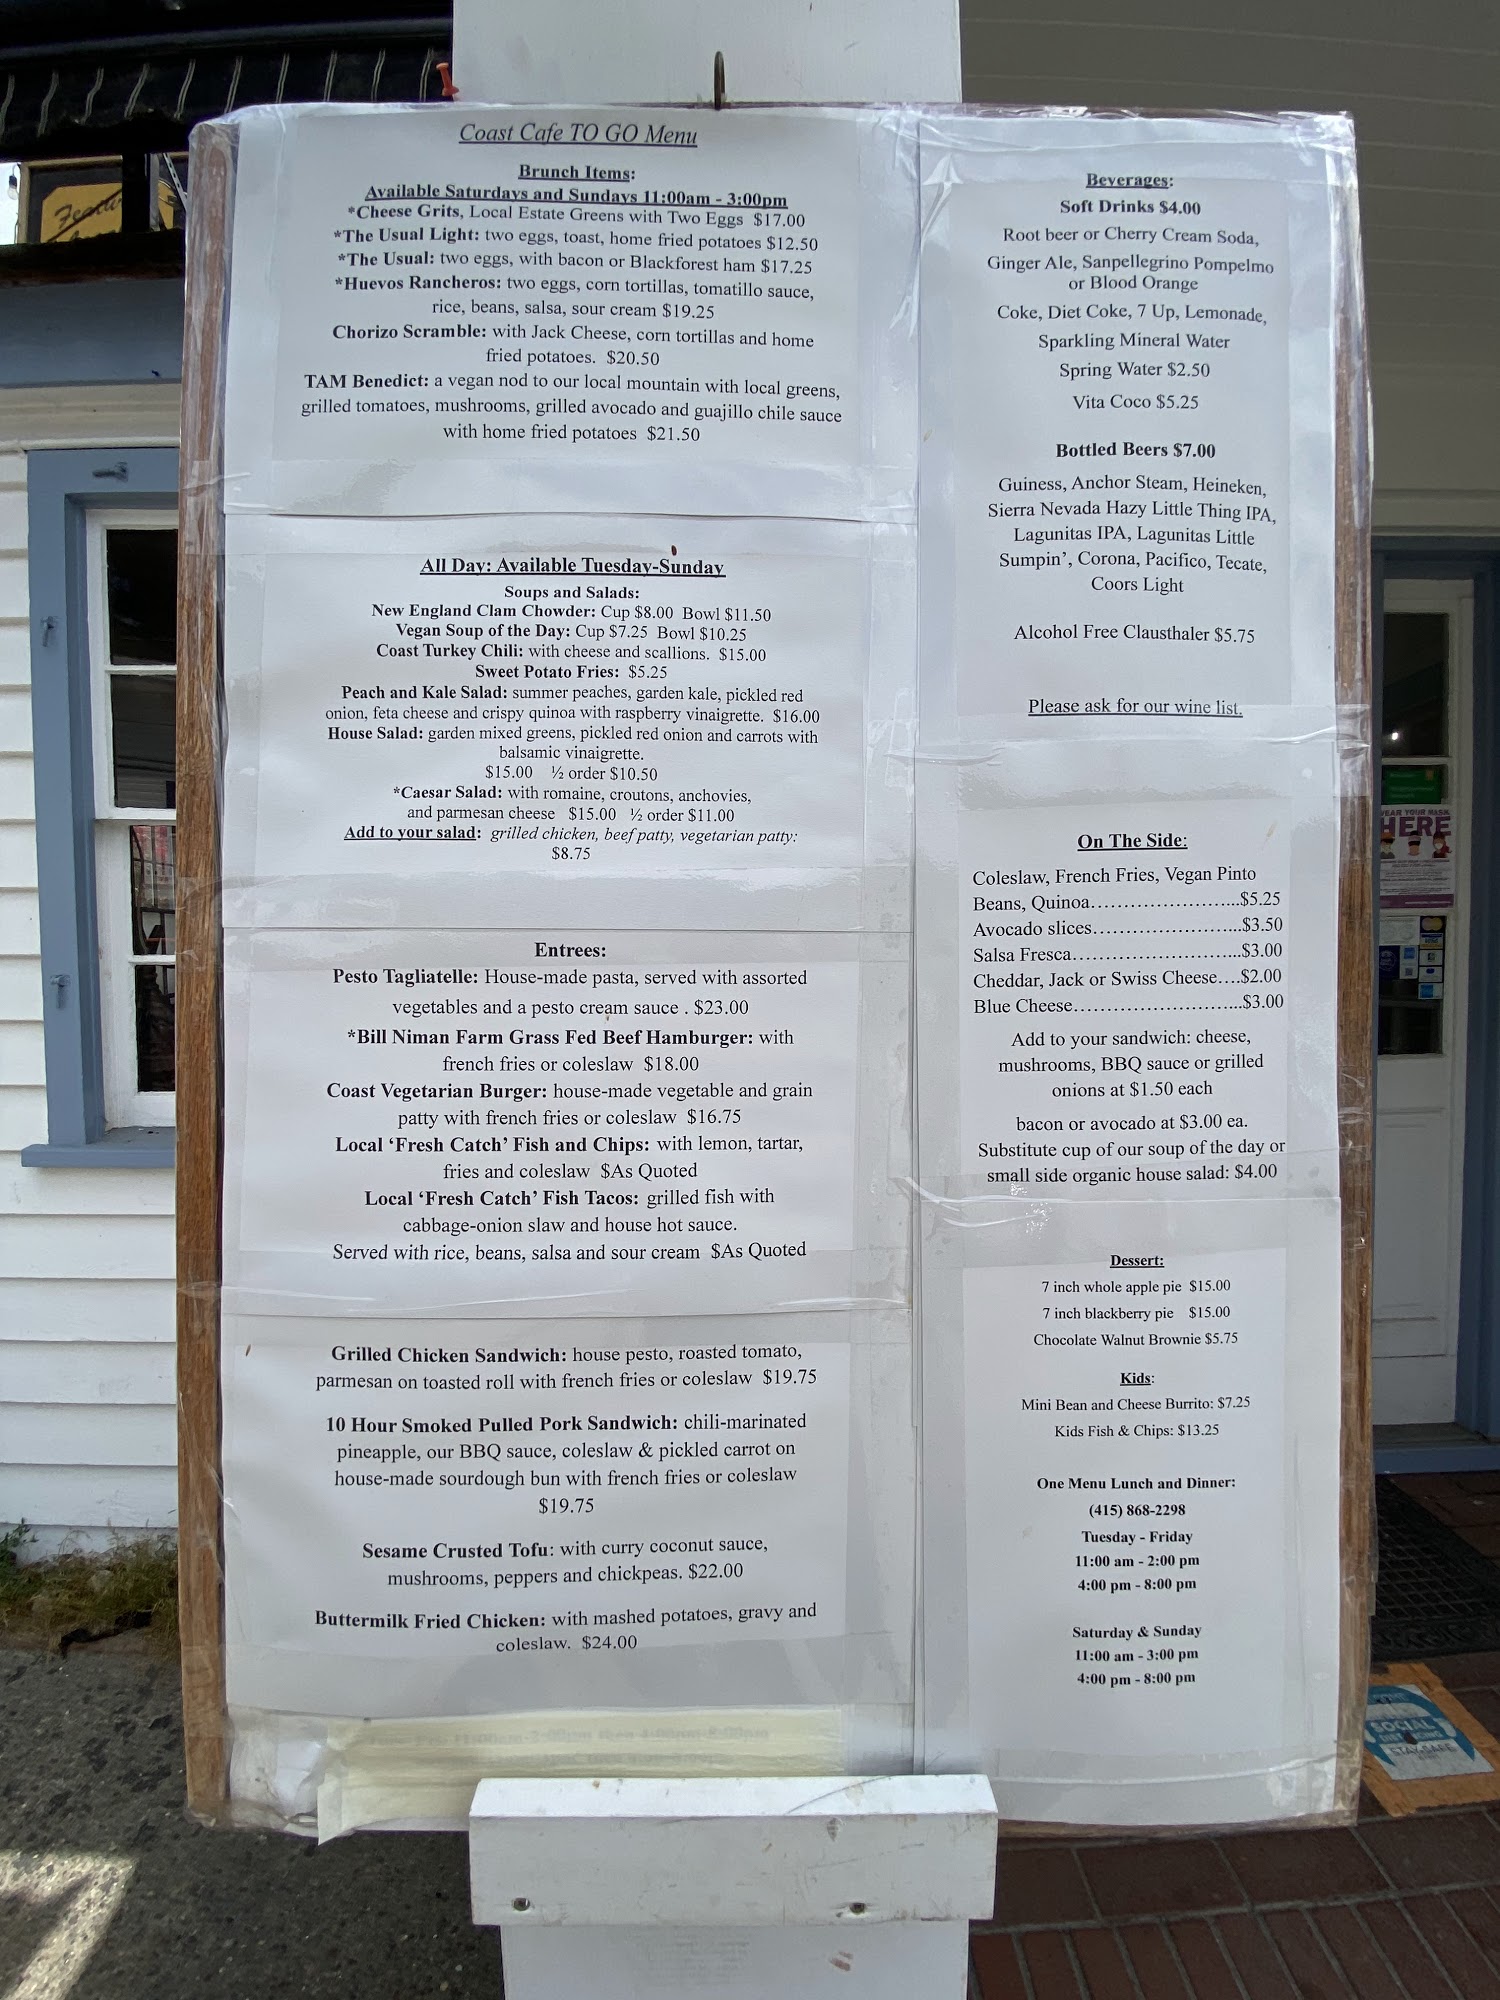 Coast Cafe TO GO Menu
Brunch Items:
Available Saturdays and Sundays 11:00am - 3:00pm
*Cheese Grits, Local Estate Greens with Two Eggs $17.00
*The Usual Light: two eggs, toast, home fried potatoes $12.50
*The Usual: two eggs, with bacon or Blackforest ham $17.25
*Huevos Rancheros: two eggs, corn tortillas, tomatillo sauce,
rice, beans, salsa, sour cream $19.25
Chorizo Scramble: with Jack Cheese, corn tortillas and home
fried potatoes. $20.50
TAM Benedict: a vegan nod to our local mountain with local greens,
grilled tomatoes, mushrooms, grilled avocado and guajillo chile sauce
with home fried potatoes $21.50
All Day: Available Tuesday-Sunday
Soups and Salads:
New England Clam Chowder: Cup $8.00 Bowl $11.50
Vegan Soup of the Day: Cup $7.25 Bowl $10.25
Coast Turkey Chili: with cheese and scallions. $15.00
Sweet Potato Fries: $5.25
Peach and Kale Salad: summer peaches, garden kale, pickled red
onion, feta cheese and crispy quinoa with raspberry vinaigrette. $16.00
House Salad: garden mixed greens, pickled red onion and carrots with
balsamic vinaigrette.
$15.00 ½ order $10.50
*Caesar Salad: with romaine, croutons, anchovies,
and parmesan cheese $15.00 ½ order $11.00
Add to your salad: grilled chicken, beef patty, vegetarian patty:
$8.75
Entrees:
Pesto Tagliatelle: House-made pasta, served with assorted
vegetables and a pesto cream sauce . $23.00
*Bill Niman Farm Grass Fed Beef Hamburger: with
french fries or coleslaw $18.00
Coast Vegetarian Burger: house-made vegetable and grain
patty with french fries or coleslaw $16.75
Local ‘Fresh Catch’ Fish and Chips: with lemon, tartar,
fries and coleslaw $As Quoted
Local ‘Fresh Catch’ Fish Tacos: grilled fish with
cabbage-onion slaw and house hot sauce.
Served with rice, beans, salsa and sour cream $As Quoted
Grilled Chicken Sandwich: house pesto, roasted tomato,
parmesan on toasted roll with french fries or coleslaw $19.75
10 Hour Smoked Pulled Pork Sandwich: chili-marinated
pineapple, our BBQ sauce, coleslaw & pickled carrot on
house-made sourdough bun with french fries or coleslaw
$19.75
Sesame Crusted Tofu: with curry coconut sauce,
mushrooms, peppers and chickpeas. $22.00
Buttermilk Fried Chicken: with mashed potatoes, gravy and
coleslaw. $24.00
Beverages:
Soft Drinks $4.00
Root beer or Cherry Cream Soda,
Ginger Ale, Sanpellegrino Pompelmo
or Blood Orange
Coke, Diet Coke, 7 Up, Lemonade,
Sparkling Mineral Water
Spring Water $2.50
Vita Coco $5.25
Bottled Beers $7.00
Guiness, Anchor Steam, Heineken,
Sierra Nevada Hazy Little Thing IPA,
Lagunitas IPA, Lagunitas Little
Sumpin’, Corona, Pacifico, Tecate,
Coors Light
Alcohol Free Clausthaler $5.75
Please ask for our wine list.
On The Side:
Coleslaw, French Fries, Vegan Pinto
Beans, Quinoa..........................$5.25
Avocado slices..........................$3.50
Salsa Fresca.............................$3.00
Cheddar, Jack or Swiss Cheese....$2.00
Blue Cheese.............................$3.00
Add to your sandwich: cheese,
mushrooms, BBQ sauce or grilled
onions at $1.50 each
bacon or avocado at $3.00 ea.
Substitute cup of our soup of the day or
small side organic house salad: $4.00
Dessert:
7 inch whole apple pie $15.00
7 inch blackberry pie $15.00
Chocolate Walnut Brownie $5.75
Kids:
Mini Bean and Cheese Burrito: $7.25
Kids Fish & Chips: $13.25
One Menu Lunch and Dinner:
(415) 868-2298
Tuesday - Friday
11:00 am - 2:00 pm
4:00 pm - 8:00 pm
Saturday & Sunday
11:00 am - 3:00 pm
4:00 pm - 8:00 pm
HERE
SOCIAL